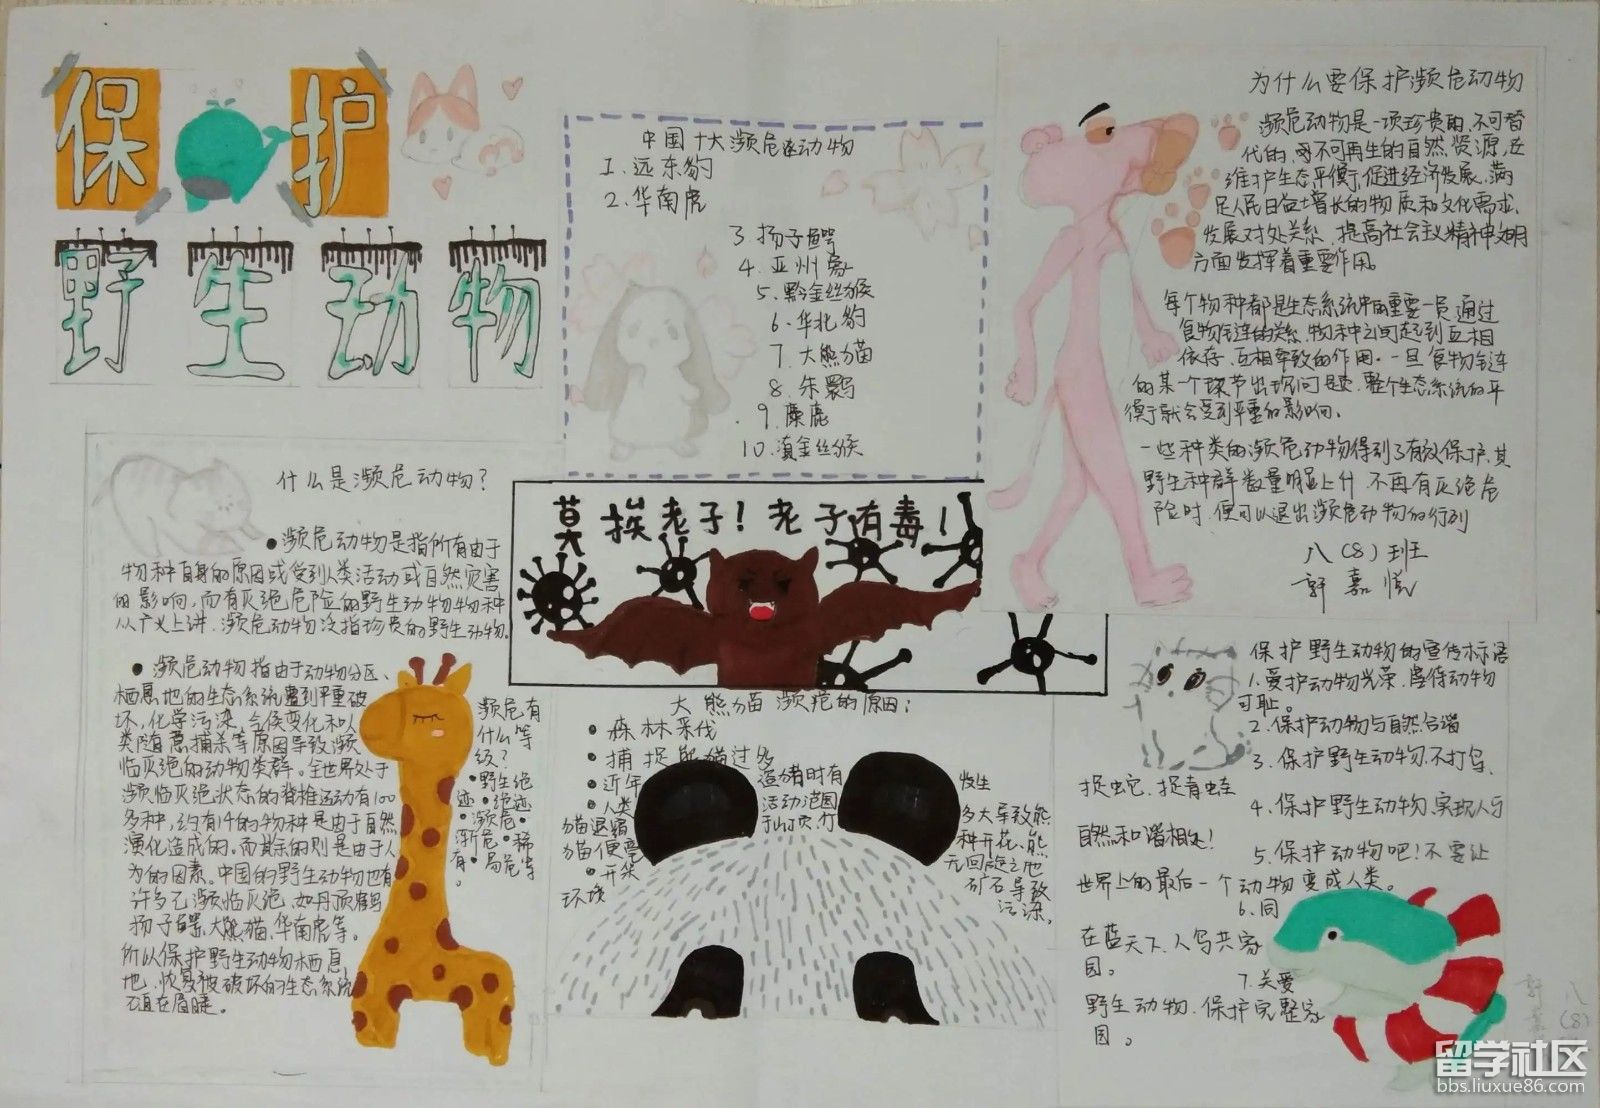 保护
野生动物
中国十大濒危动物
1.远东豹
2.华南虎
3.扬子鳄
4.亚州象
5.黔金丝猴
6.华北豹
7.大熊猫
8.朱鹮
9.麋鹿
10.滇金丝猴
为什么要保护濒危动物
濒危动物是一项珍贵的、不可替
代的、不可再生的自然资源,在
维护生态平衡、促进经济发展、满
足人民日益增长的物质和文化需求、
发展对外关系、提高社会主义精神文明
方面发挥着重要作用。
每个物种都是生态系统中的重要一员,通过
食物链的关系,物种之间起到互相
依存、互相牵致的作用。一旦食物链
的某一个环节出现问题,整个生态系统的平
衡就会受到严重的影响、
一些种类的濒危动物得到了有效保护,其
野生种群数量明显上升 不再有灭绝危
险时,便可以退出濒危动物的行列
八(8)班
轩嘉悦
什么是濒危动物?
●濒危动物是指所有由于
物种自身的原因或受到人类活动或自然灾害
的影响,而有灭绝危险的野生动物物种
从广义上讲,濒危动物泛指珍贵的野生动物。
●濒危动物指由于动物分区、
栖息地的生态系统遭到严重破
坏,化学污染、气候变化和人
类随意捕杀等原因导致濒
临灭绝的动物类群。全世界处于
濒临灭绝状态的脊椎动有100
多种,约有1/4的物种是由于自然
演化造成的。而其余的则是由于人
为的因素。中国的野生动物也有
许多已濒临灭绝,如丹顶鹤
扬子鳄、大熊猫、华南虎等。
所以保护野生动物栖息
地,恢复被破坏的生态系统
已迫在眉睫。
濒危有
什么等
级?
●野生绝
迹●绝迹
●濒危●
渐危●稀
有●局危等
。
莫挨老子!老子有毒!
大熊猫濒危的原因:
●森林采伐
●捕捉熊猫过多
●近年
盗猎时有
发生
●人类
活动范围
多大导致熊
猫退缩
于山顶,竹
种开花、熊
猫便
无回旋之地
●开采
矿石导致
环境
污染。
保护野生动物的宣传标语
1.爱护动物光荣,虐待动物
可耻。
2.保护动物与自然合谐
3.保护野生动物,不打鸟、
捉蛇、捉青蛙
4.保护野生动物,实现人与
自然和谐相处!
5.保护动物吧!不要让
世界上的最后一个动物变成人类。
6.同
在蓝天下,人鸟共家
园。
7.关爱
野生动物,保护完整家
园。
八(8)
轩嘉
留学社区
bbs.liuxue86.com